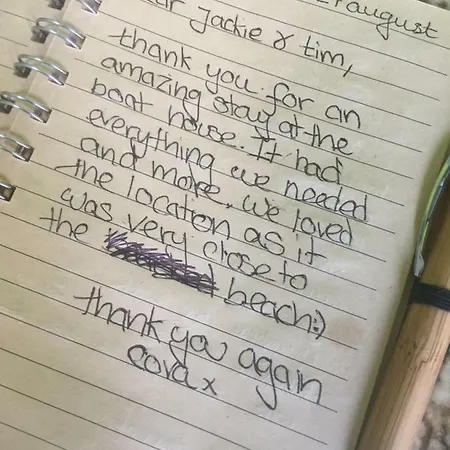 august
Jackie & tim,
thank you for an
amazing stay at the
boat house. It had
everything we needed
and more. we loved
the location as it
was very close to
the beach:)
thank you again
cora x